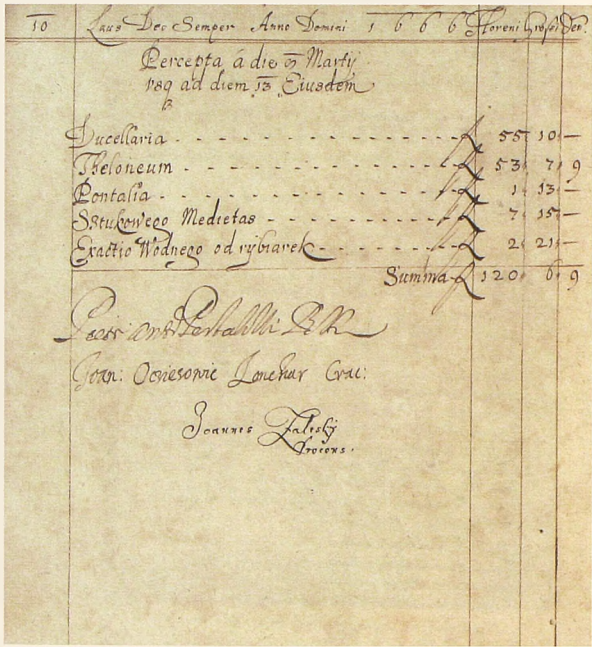 10 Laus Deo Semper Anno Domini 1 6 6 6 Floreni Grossi Den:
Percepta á die Martij
ad diem 13 Eiusdem
Ducellaria - - - - - - - - - - - - - fl 55 10 —
Theloneum - - - - - - - - - - - - - fl 53 7 9
Pontalia - - - - - - - - - - - - - fl 1 13 —
Sztukowego Medietas - - - - - - - - fl 7 15 —
Exactio Wodnego od rybiarek - - - - - fl 2 21 —
Summa fl 120 6 9
Joan: Crac:
Joannes Zaleskÿ